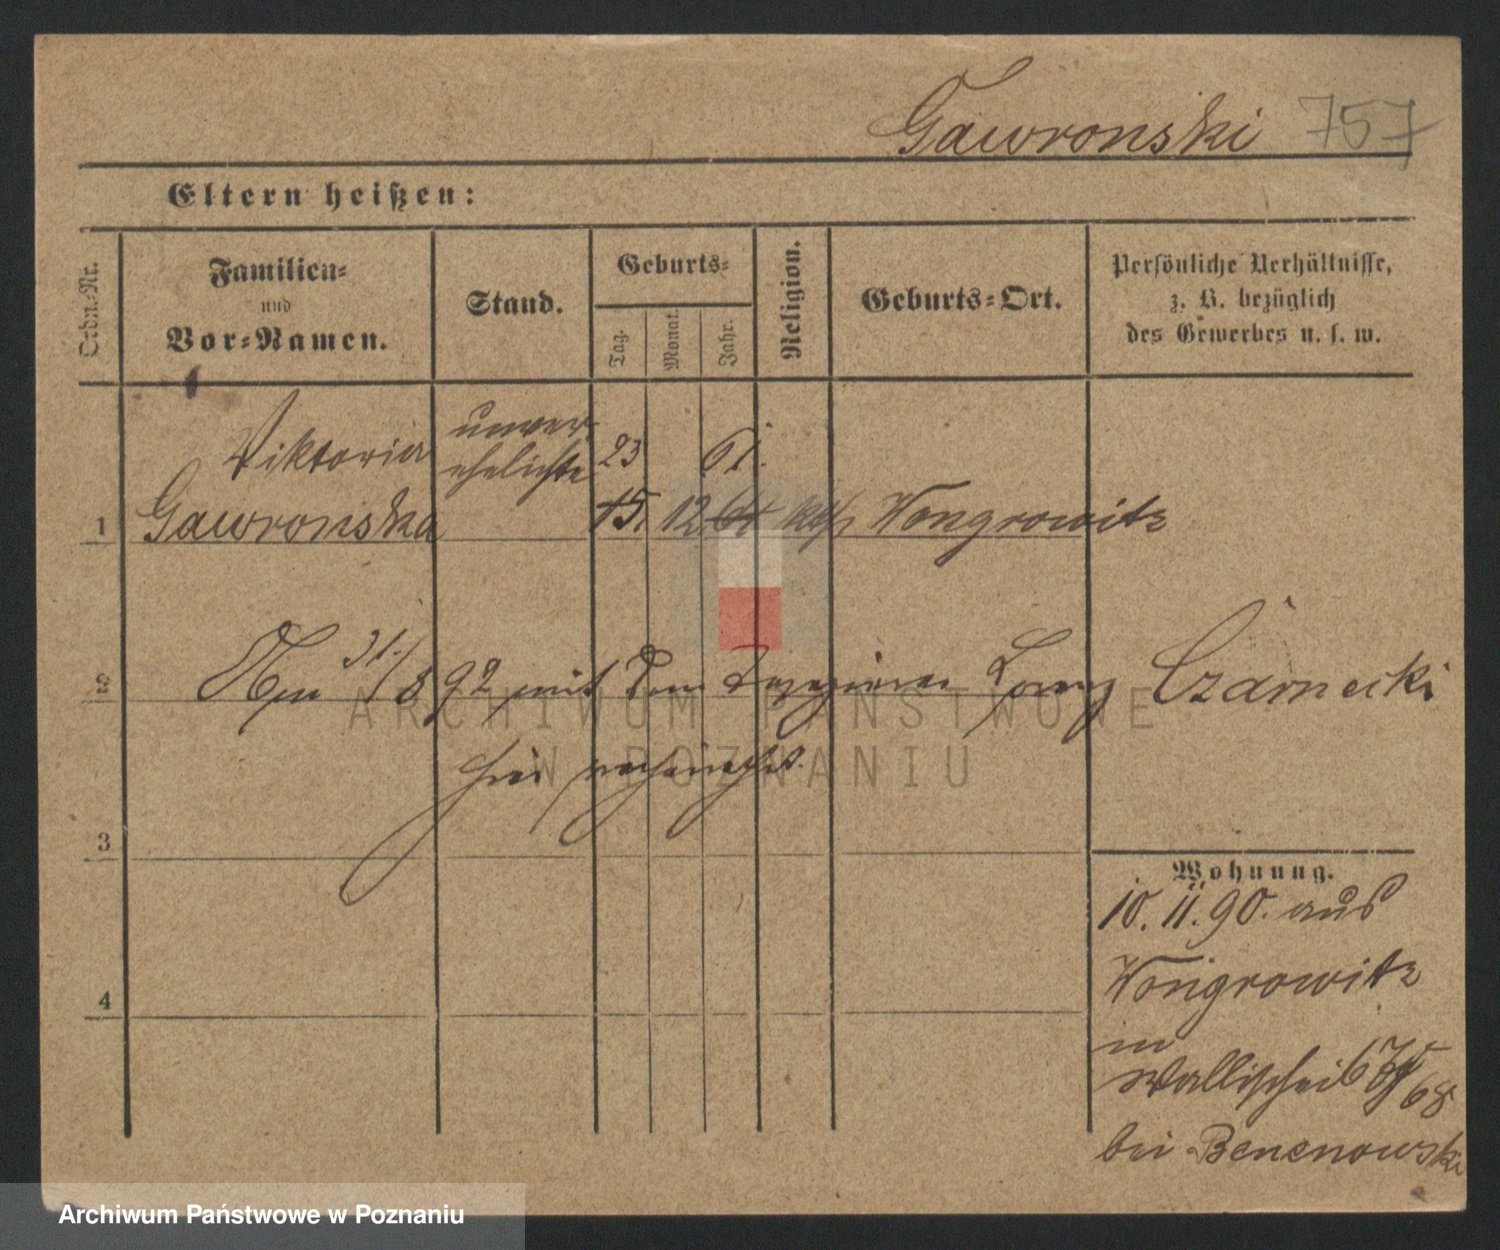 Gawronski 757
Eltern heißen:
Ordn.-Nr.
Familien-
und
Vor-Namen.
Stand.
Geburts-
Tag.
Monat.
Jahr.
Religion.
Geburts-Ort.
Persönliche Verhältnisse,
z. B. bezüglich
des Gewerbes u. s. w.
Viktoria
unver-
ehelichte
23 61.
1 Gawronska 15. 12 61 kath Wongrowitz
2 Am 31./8 92 mit dem Tapezierer Lorenz Czarnecki
hier verheirathet.
3
4
Wohnung.
10. 11. 90. aus
Wongrowitz
in
Wallischei 67/68
bei Benenowski
ARCHIWUM PAŃSTWOWE
W POZNANIU
Archiwum Państwowe w Poznaniu